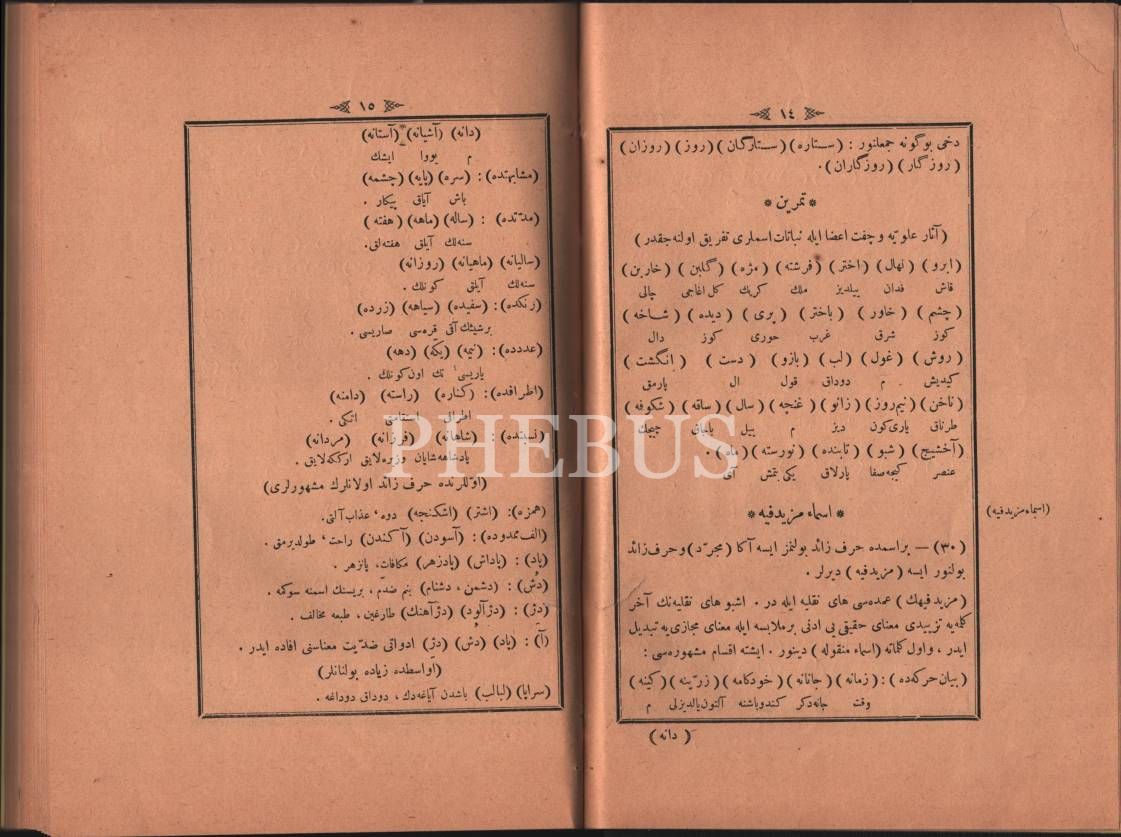 ١٤
دخی بوگونه جمعلنور : (ستاره) (ستارگان) (روز) (روزان)
(روزگار) (روزگاران) .
* تمرین *
(آثار علویه و جفت اعضا ایله نباتات اسملری تفریق اولنه‌جقدر)
(ابرو) (نهال) (اختر) (فرشته) (مژه) (گلبن) (خاربن)
قاش فدان ییلدیز ملك کرپك کل اغاجی چالی
(چشم) (خاور) (باختر) (پری) (دیده) (شاخه)
کوز شرق غرب حوری کوز دال
(روش) (غول) (لب) (بازو) (دست) (انگشت)
کیدیش م دوداق قول ال پارمق
(ناخن) (نیم‌روز) (زانو) (غنچه) (سال) (ساقه) (شکوفه)
طرناق یاری‌کون دیز م ییل باجاق چیچك
(آخشیج) (شبو) (تابنده) (نورسته) (ماه) .
عنصر کیجه‌سفا پارلاق یکی بتمش آی
* اسماء مزیدفیه *
(اسماء مزیدفیه)
(٣٠) — براسمده حرف زائد بولنمز ایسه آکا (مجرّد) و حرف زائد
بولنور ایسه (مزیدفیه) دیرلر .
(مزیدفیهك) عمده‌سی های نقلیه ایله در . اشبو های نقلیه‌نك آخر
کلمه‌یه تزییدی معنای حقیقی‌یی ادنی برملابسه ایله معنای مجازی‌یه تبدیل
ایدر . واول کلماته (اسماء منقوله) دینور . ایشته اقسام مشهوره‌سی :
(بیان حرکه‌ده) : (زمانه) (جانانه) (خودکامه) (زرّینه) (کینه)
وقت جانه‌دکر کندوباشنه آلتون‌یالدیزلی م
(دانه)
١٥
(دانه) (آشیانه) (آستانه)
م یووا ایشك
(مشابهتده) : (سره) (پایه) (چشمه)
باش آیاق پیکار .
(مدّتده) : (ساله) (ماهه) (هفته)
سنه‌لك آیلق هفته‌لق .
(سالیانه) (ماهیانه) (روزانه)
سنه‌لك آیلق کونلك .
(رنکده) : (سفیده) (سیاهه) (زرده)
برشیئك آقی قره‌سی صاریسی .
(عددده) : (نیمه) (یکّه) (دهه)
یاریسی تك اون‌کونلك .
(اطرافده) : (کناره) (راسته) (دامنه)
اطرافی استقامتی اتکی .
(نسبتده) : (شاهانه) (فرزانه) (مردانه)
پادشاهه‌شایان وزیره‌لایق ارککه‌لایق .
(اوّللرنده حرف زائد اولانلرك مشهورلری)
(همزه) : (اشتر) (اشکنجه) دوه ، عذاب آلتی.
(الف ممدوده) : (آسودن) (آکندن) راحت ، طولدیرمق .
(پاد) : (پاداش) (پادزهر) مکافات، پانزهر .
(دُش) : (دشمن ، دشنام) بنم ضدّم ، بریسنك اسمنه سوکمه .
(دژ) : (دژآلود) (دژآهنك) طارغین ، طبعه مخالف .
(آ) : (پاد) (دُش) (دژ) ادواتی ضدّیت معناسنی افاده ایدر .
(اواسطده زیاده بولنانلر)
(سراپا) (لبالب) باشدن آیاغه‌دك ، دوداق دوداغه .
PHEBUS